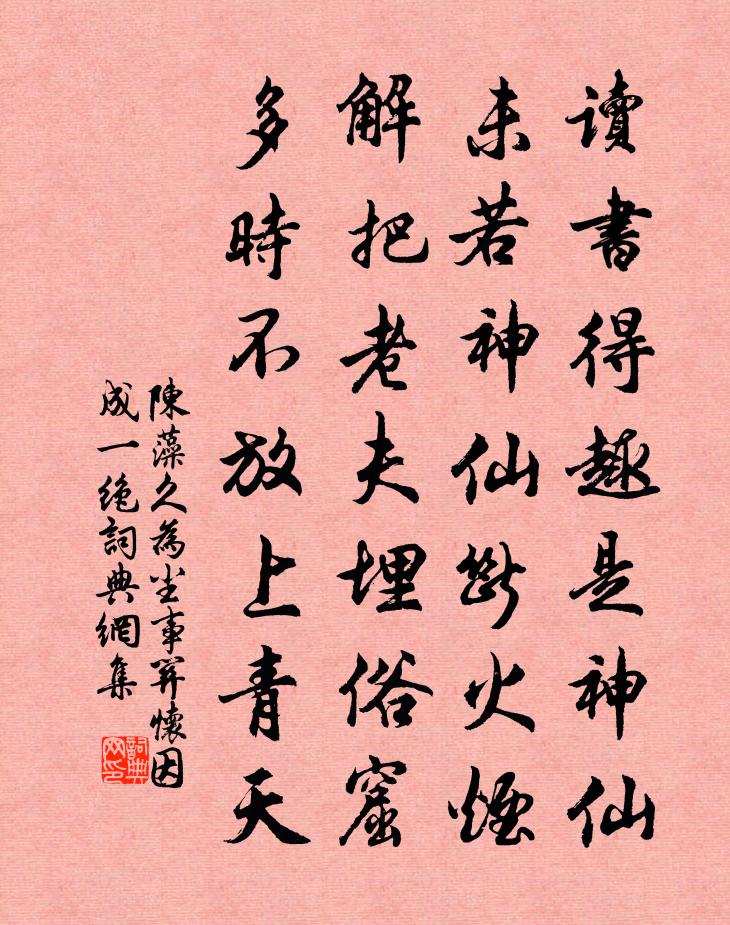 讀書得趣是神仙
未若神仙斷火煙
解把老夫埋俗窟
多時不放上青天
陳藻久為尘事罥懷因
成一绝詞典網集
詞典网印